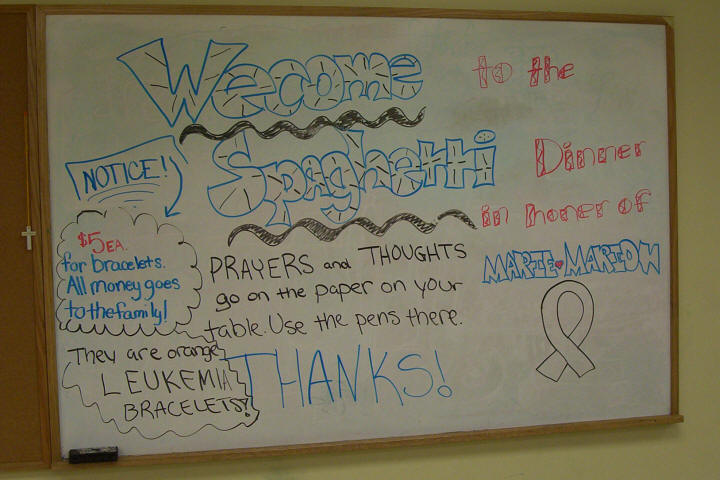 Wecome to the
Spaghetti Dinner
in honer of
MARIE
NOTICE!
$5 EA.
for bracelets.
All money goes
to the family!
They are orange
LEUKEMIA
BRACELETS!
PRAYERS and THOUGHTS
go on the paper on your
table. Use the pens there.
THANKS!